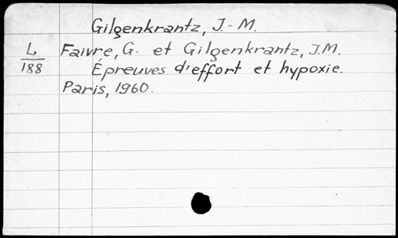 Gilgenkrantz, J.-M.
L Faivre, G. et Gilgenkrantz, J.M.
188 Épreuves d'effort et hypoxie.
Paris, 1960.